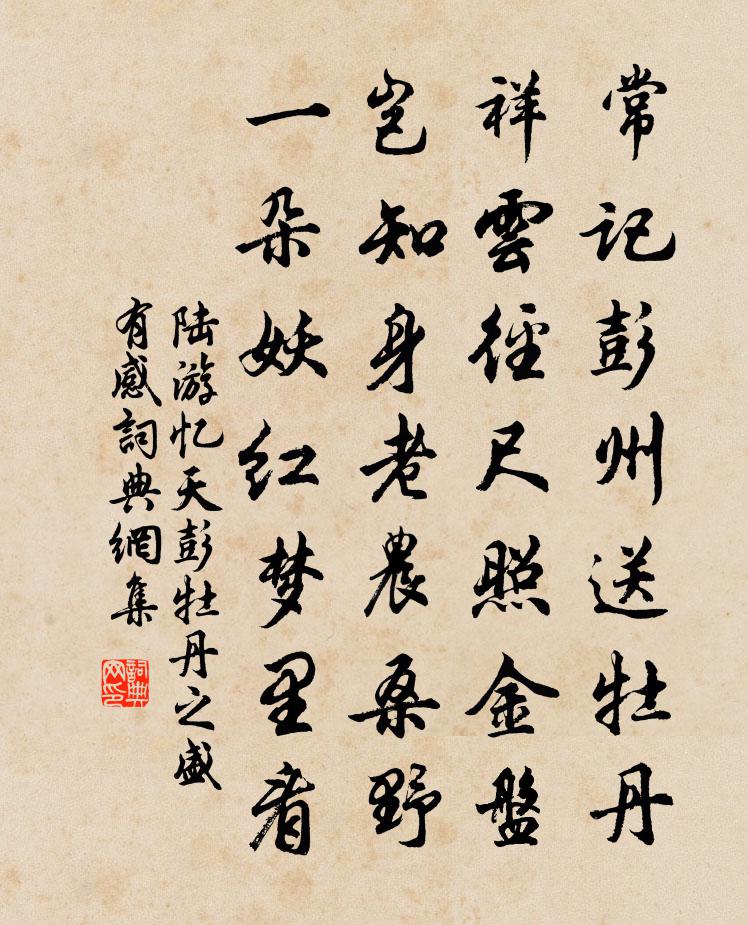 常記彭州送牡丹
祥雲徑尺照金盤
豈知身老農桑野
一朵妖红梦里看
陆游忆天彭牡丹之盛
有感詞典網集
詞典网印